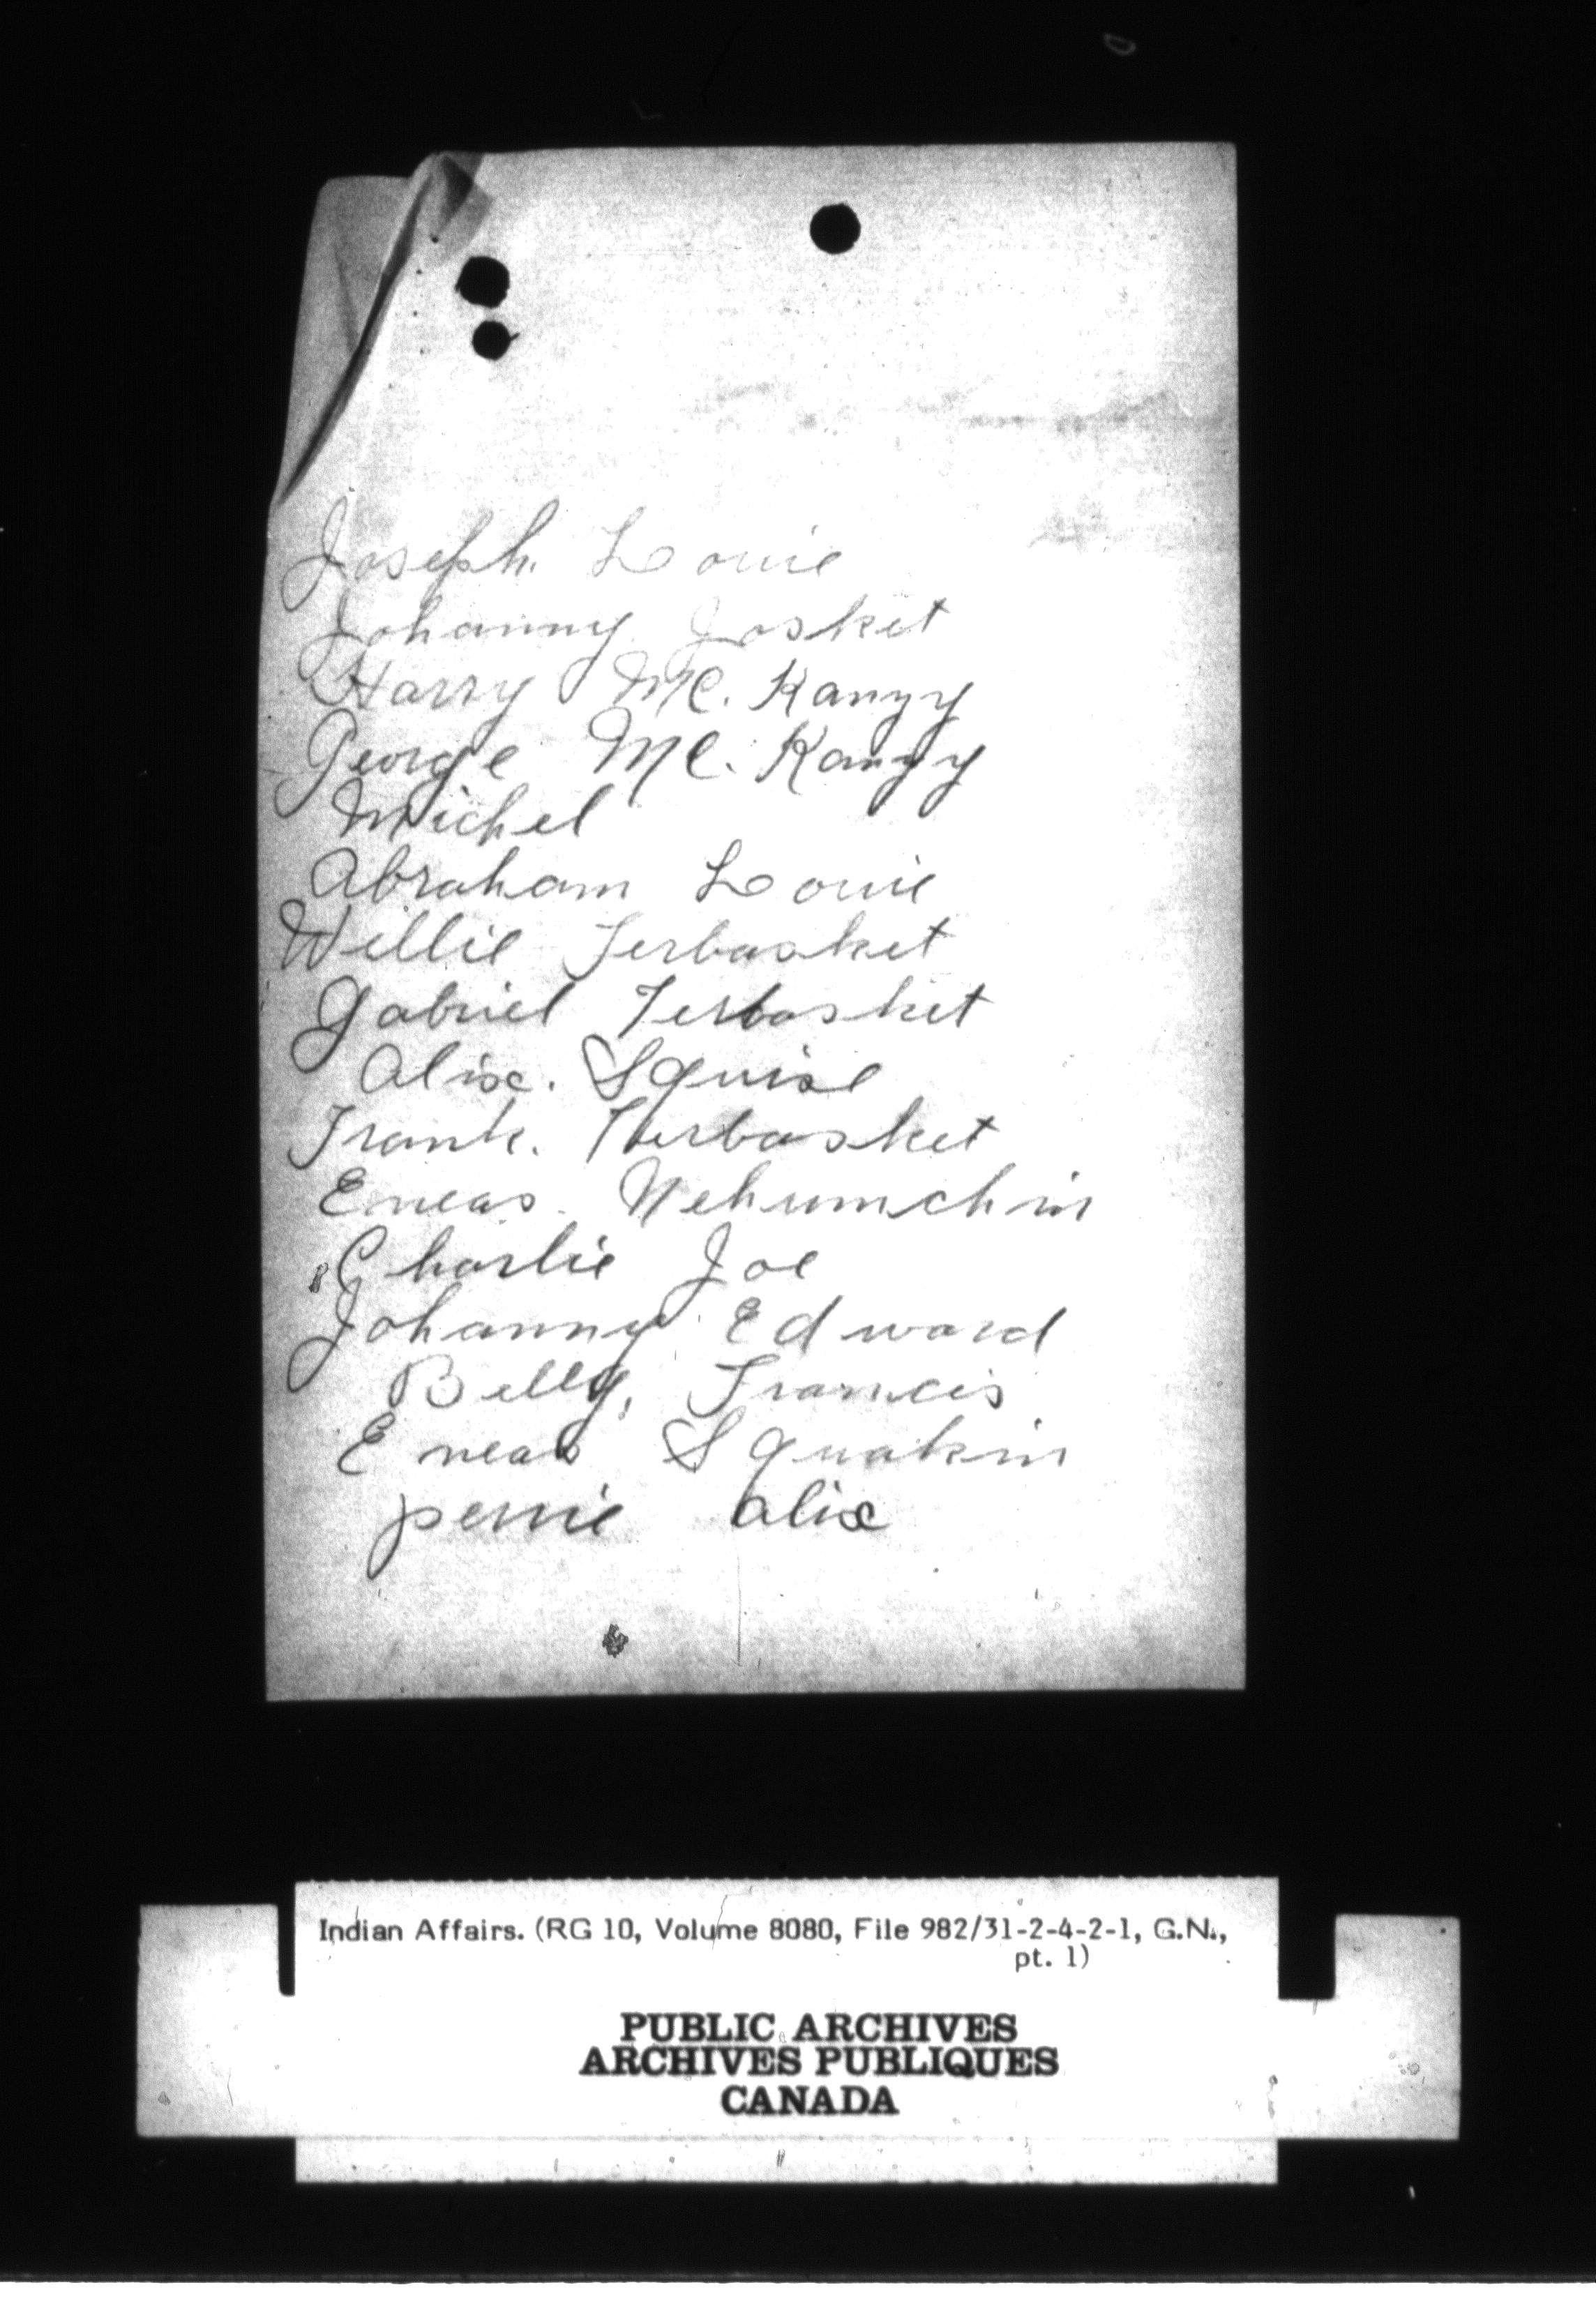 Joseph. Louie
Johanny Josket
Harry Mc. Kanzy
George Mc. Kanzy
Michel
Abraham Louie
Willie Terbasket
Gabriel Terbasket
Alix. Squise
Frank. Terbasket
Eneas. Nehumchin
Charlie Joe
Johanny Edward
Billy, Francis
Eneas Squakin
perrie alix
Indian Affairs. (RG 10, Volume 8080, File 982/31-2-4-2-1, G.N.,
pt. 1)
PUBLIC ARCHIVES
ARCHIVES PUBLIQUES
CANADA